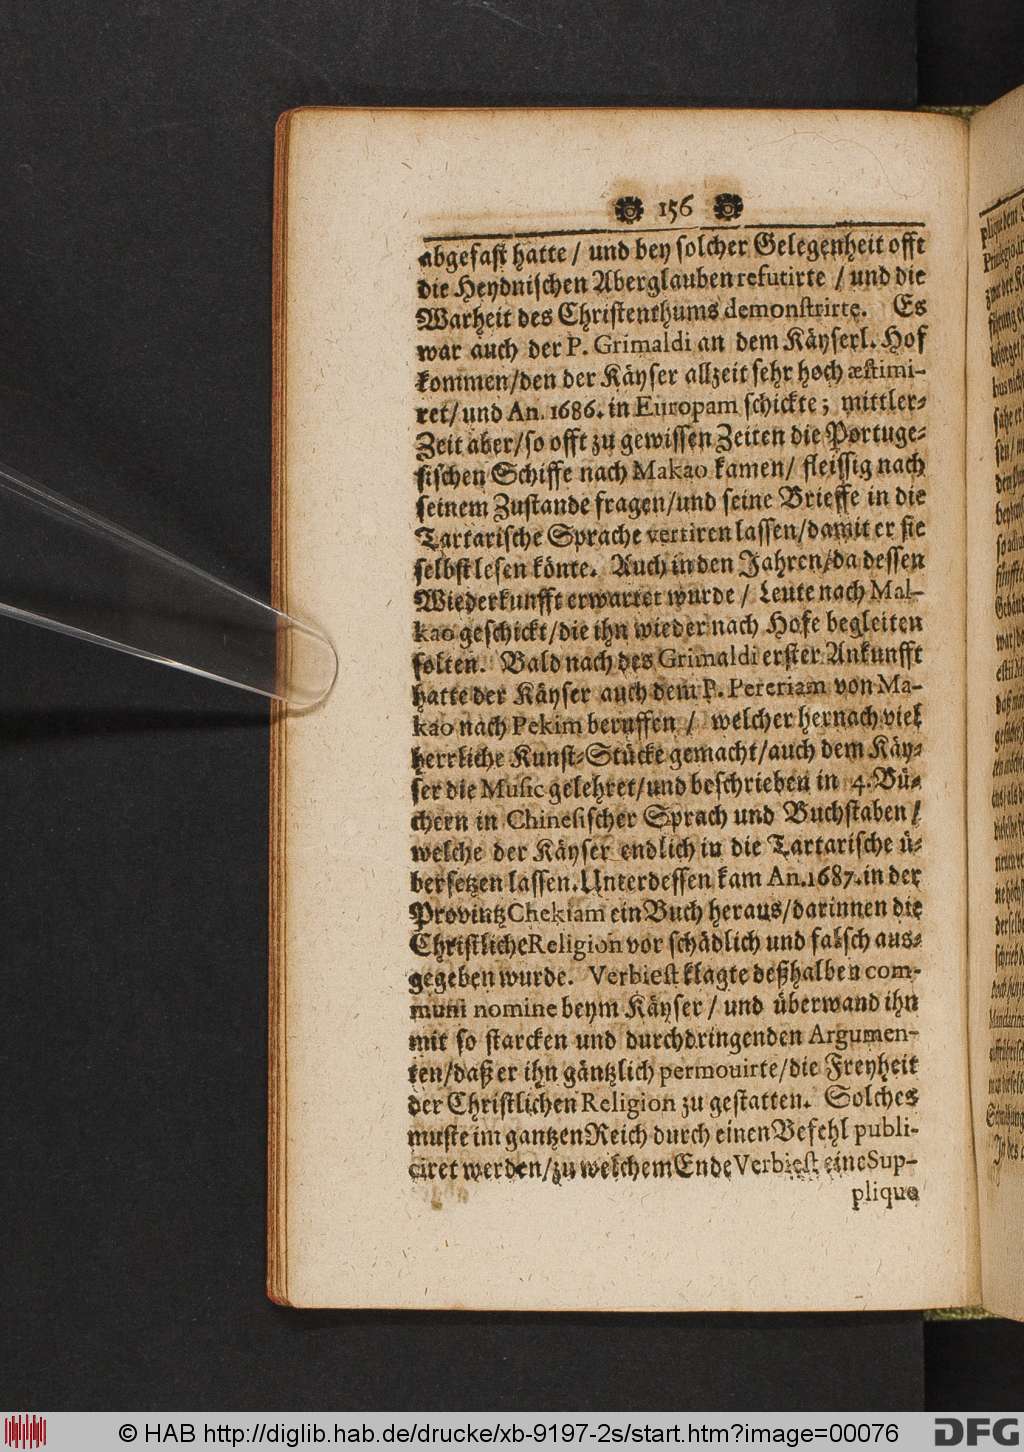 156
abgefast hatte / und bey solcher Gelegenheit offt
die Heydnischen Aberglauben refutirte / und die
Warheit des Christenthums demonstrirte. Es
war auch der P. Grimaldi an dem Käyserl. Hof
kommen/den der Käyser allzeit sehr hoch æstimi-
ret/ und An. 1686. in Europam schickte; mittler-
Zeit aber/so offt zu gewissen Zeiten die Portuge-
sischen Schiffe nach Makao kamen/ fleissig nach
seinem Zustande fragen/und seine Brieffe in die
Tartarische Sprache vertiren lassen/damit er sie
selbst lesen könte. Auch in den Jahren/da dessen
Wiederkunfft erwartet wurde / Leute nach Mal-
kao geschickt/die ihn wieder nach Hofe begleiten
solten. Bald nach des Grimaldi erster Ankunfft
hatte der Käyser auch dem P. Pereriam von Ma-
kao nach Pekim beruffen / welcher hernach viel
herrliche Kunst-Stücke gemacht/auch dem Käy-
ser die Music gelehret/und beschrieben in 4. Bü-
chern in Chinesischer Sprach und Buchstaben /
welche der Käyser endlich in die Tartarische ü-
bersetzen lassen. Unterdessen kam An. 1687. in der
Provintz Chekiam ein Buch heraus/darinnen die
Christliche Religion vor schädlich und falsch aus-
gegeben wurde. Verbiest klagte deßhalben com-
muni nomine beym Käyser / und überwand ihn
mit so starcken und durchdringenden Argumen-
ten/daß er ihn gäntzlich permouirte/die Freyheit
der Christlichen Religion zu gestatten. Solches
muste im gantzen Reich durch einen Befehl publi-
ciret werden/zu welchem Ende Verbiest eine Sup-
plique
© HAB http://diglib.hab.de/drucke/xb-9197-2s/start.htm?image=00076
DFG